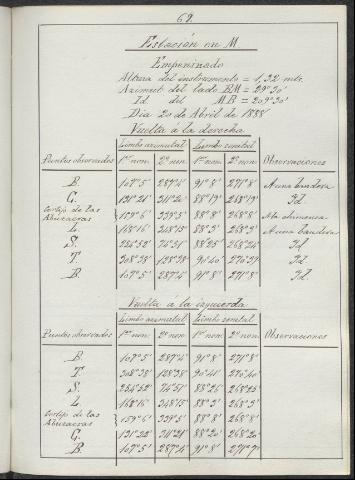 68.
Estación en M
Empeninado
Altura del instrumento = 1,32 mts.
Azimut del lado BM = 29°30'
Id del MB = 209°30'
Dia 20 de Abril de 1888
Vuelta á la derecha
Limbo azimutal Limbo cenital
Puntos observados 1er non. 2º non. 1er non. 2º non. Observaciones
B. 107°5' 287°4' 91°8' 271°8' A una bandera
G. 131°21' 311°21' 88°19' 268°19' Id.
Cortijo de las
159°6' 339°5' 88°8' 268°8' A la chimenea
L. 168°16' 348°15' 88°3' 268°3' A una bandera
S. 254°52' 74°51' 88°25' 268°24' Id
T. 308°38' 128°38' 90°40' 270°39' Id
B. 107°5' 287°4' 91°8' 271°8' Id
Vuelta á la izquierda
Limbo azimutal Limbo cenital
Puntos observados 1er non. 2º non. 1er non. 2º non. Observaciones
B. 107°5' 287°4' 91°8' 271°8'
T. 308°38' 128°38' 90°41' 270°40'
S. 254°52' 74°51' 88°26' 268°25'
L. 168°16' 348°15' 88°3' 268°3'
Cortijo de las
159°6' 339°5' 88°8' 268°8'
G. 131°22' 311°21' 88°20' 268°20'
B. 107°5' 287°4' 91°8' 271°7'